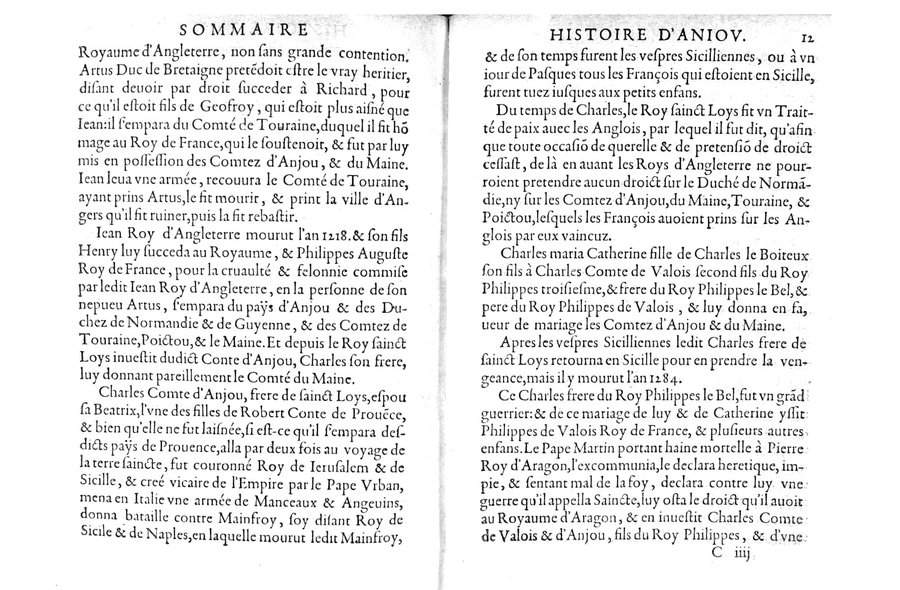 SOMMAIRE
Royaume d'Angleterre, non ſans grande contention.
Artus Duc de Bretaigne pretẽdoit eſtre le vray heritier,
diſant deuoir par droit ſucceder à Richard, pour
ce qu'il eſtoit fils de Geofroy, qui eſtoit plus aiſné que
Iean:il s'empara du Comté de Touraine,duquel il fit hõ
mage au Roy de France,qui le ſouſtenoit, & fut par luy
mis en poſſeſſion des Comtez d'Anjou, & du Maine.
Iean leua vne armée, recouura le Comté de Touraine,
ayant prins Artus,le fit mourir, & print la ville d'An-
gers qu'il fit ruiner,puis la fit rebaſtir.
Iean Roy d'Angleterre mourut l'an 1218. & ſon fils
Henry luy ſucceda au Royaume, & Philippes Auguſte
Roy de France, pour la cruaulté & felonnie commiſe
par ledit Iean Roy d'Angleterre, en la perſonne de ſon
nepueu Artus, s'empara du paÿs d'Anjou & des Du-
chez de Normandie & de Guyenne, & des Comtez de
Touraine,Poictou,& le Maine. Et depuis le Roy ſainct
Loys inueſtit dudict Conte d'Anjou, Charles ſon frere,
luy donnant pareillement le Comté du Maine.
Charles Comte d'Anjou, frere de ſainct Loys,eſpou
ſa Beatrix,l'vne des filles de Robert Conte de Prouẽce,
& bien qu'elle ne fut laiſnée,ſi eſt-ce qu'il s'empara deſ-
dicts paÿs de Prouence,alla par deux fois au voyage de
la terre ſaincte, fut couronné Roy de Ieruſalem & de
Sicille, & creé vicaire de l'Empire par le Pape Vrban,
mena en Italie vne armée de Manceaux & Angeuins,
donna bataille contre Mainfroy, ſoy diſant Roy de
Sicile & de Naples,en laquelle mourut ledit Mainfroy,
HISTOIRE D'ANIOV. 12
& de ſon temps furent les veſpres Sicilliennes, ou à vn
iour de Paſques tous les François qui eſtoient en Sicille,
furent tuez iuſques aux petits enfans.
Du temps de Charles,le Roy ſainct Loys fit vn Trait-
té de paix auec les Anglois, par lequel il fut dit, qu'afin
que toute occaſiõ de querelle & de pretenſiõ de droict
ceſſaſt, de là en auant les Roys d'Angleterre ne pour-
roient pretendre aucun droict ſur le Duché de Normã-
die,ny ſur les Comtez d'Anjou,du Maine,Touraine, &
Poictou,leſquels les François auoient prins ſur les An-
glois par eux vaincuz.
Charles maria Catherine fille de Charles le Boiteux
ſon fils à Charles Comte de Valois ſecond fils du Roy
Philippes troiſieſme,& frere du Roy Philippes le Bel,&
pere du Roy Philippes de Valois, & luy donna en fa,
ueur de mariage les Comtez d'Anjou & du Maine.
Apres les veſpres Sicilliennes ledit Charles frere de
ſainct Loys retourna en Sicille pour en prendre la ven-
geance,mais il y mourut l'an 1284.
Ce Charles frere du Roy Philippes le Bel,fut vn grãd
guerrier: & de ce mariage de luy & de Catherine yſſit
Philippes de Valois Roy de France, & pluſieurs autres
enfans. Le Pape Martin portant haine mortelle à Pierre
Roy d'Aragon,l'excommunia,le declara heretique, im-
pie, & ſentant mal de la foy, declara contre luy vne
guerre qu'il appella Saincte,luy oſta le droict qu'il auoit
au Royaume d'Aragon, & en inueſtit Charles Comte
de Valois & d'Anjou, fils du Roy Philippes, & d'vne
C iiij